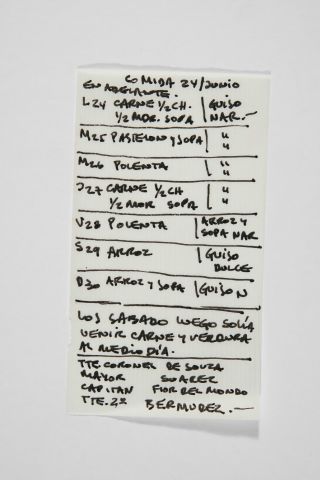 COMIDA 24/JUNIO
EN ADELANTE.
L24 CARNE 1/2 CH. | GUISO
1/2 MOR. SOPA | NAR.—
M25 PASTELON Y SOPA | "
M26 POLENTA | "
J27 CARNE 1/2 CH | "
1/2 MOR SOPA | "
V28 POLENTA | ARROZ Y
SOPA NAR
S29 ARROZ | GUISO
DULCE
D30 ARROZ Y SOPA | GUISO N
LOS SABADO LUEGO SOLÍA
VENIR CARNE Y VERDURA
AL MEDIO DÍA.
TTE. CORONEL DE SOUZA
MAYOR SUAREZ
CAPITAN FLOR DEL MONDO
TTE. 2º BERMUDEZ.—